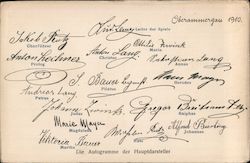 Oberammergau 1910.
Leiter der Spiele
Jakob Rutz Ottilie Zwink
Chorführer Maria
Anton Lechner Anton Lang Sebastian Lang
Prolog Christus Annas
J. Bauer Hans Mayr
Andreas Lang Pilatus Herodes
Petrus
Johann Zwink Gregor Breitsamter
Judas Kaiphas
Marie Mayr Alfred Bierling
Magdalena Johannes
Viktoria Bauer
Martha
Die Autogramme der Hauptdarsteller